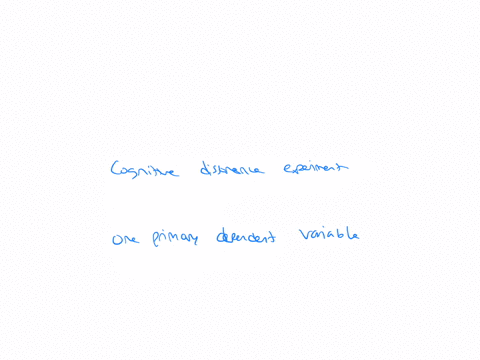 Cognitive dissonance experiment
One primary dependent variable